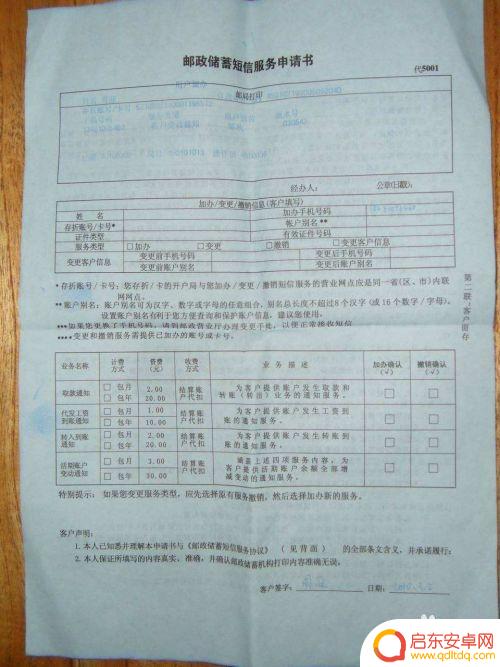 邮政储蓄短信服务申请书
代5001
邮局打印
经办人：
公章(日戳)：
加办/变更/撤销信息(客户填写)
姓 名
加办手机号码
存折账号/卡号*
帐户别名**
证件类型
有效证件号码
服务类型
□加办
□变更
□撤销
□变更客户信息
变更客户信息
变更前手机号码
变更后手机号码
变更前账户别名
变更后账户别名
*存折账号/卡号：您存折/卡的开户局与您加办/变更/撤销短信服务的营业网点应是同一省(区、市)内联
网网点。
**账户别名：账户别名可为汉字、数字或字母的任意组合，别名总长度不超过8个汉字(或16个数字/字母)，
设置账户别名有利于您方便查询和保护账户信息，建议您使用。
***如果您更换了手机号码，请到邮政营业厅办理变更手续，以便正常接收短信。
****变更和撤销服务需提供已加办的账号或卡号。
第二联：客户留存
业务名称
计费方式
资费(元)
收费方式
业 务 描 述
加办确认(√)
撤销确认(√)
取款通知
□ 包月 2.00
□ 包年 20.00
结算账户代扣
为客户提供账户发生取款和
转账（转出）业务的通知服务。
□
□
代发工资到账通知
□ 包月 1.00
□ 包年 10.00
结算账户代扣
为客户提供账户发生工资到
账的通知服务。
□
□
转入到账通知
□ 包月 2.00
□ 包年 20.00
结算账户代扣
为客户提供账户发生转账到
账的通知服务。
□
□
活期账户变动通知
□ 包月 3.00
□ 包年 30.00
结算账户代扣
涵盖上述四项服务内容，为
客户提供活期账户余额全部增
减变动的通知服务。
□
□
特别提示：如果您变更服务类型，应先选择原有服务撤销，然后选择加办新的服务。
客户声明：
1. 本人已知悉并理解本申请书与《邮政储蓄短信服务协议》（见背面）的全部条文含义，并承诺履行；
2. 本人保证所填写的内容真实、准确，并确认邮政储蓄机构打印内容准确无误。
客户签字：
日期：
启东安卓网
www.qdltdq.com